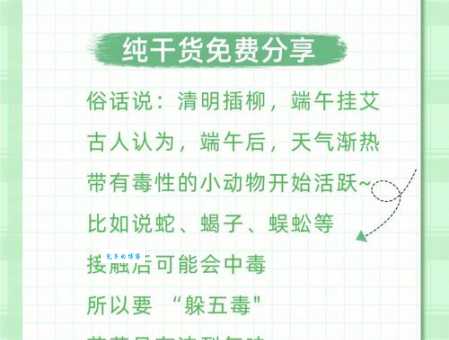 纯干货免费分享
俗话说：清明插柳，端午挂艾
古人认为，端午后，天气渐热
带有毒性的小动物开始活跃~
比如说蛇、蝎子、蜈蚣等
接触后可能会中毒
所以要 “躲五毒"